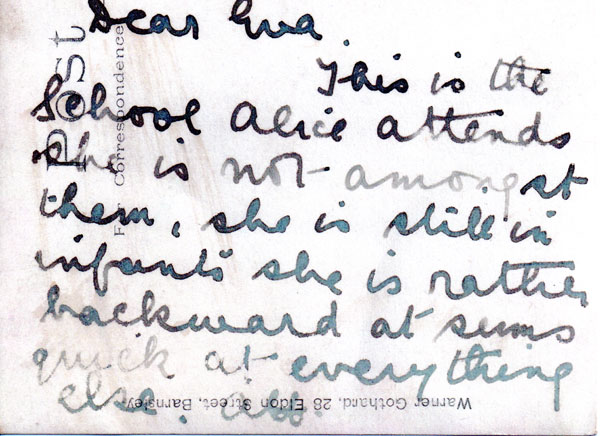 Dear Eva
This is the
School Alice attends
she is not amongst
them, she is still in
infants she is rather
backward at sums
quick at everything
else.
Post
For Correspondence
Warner Gothard, 28 Eldon Street, Barnsley